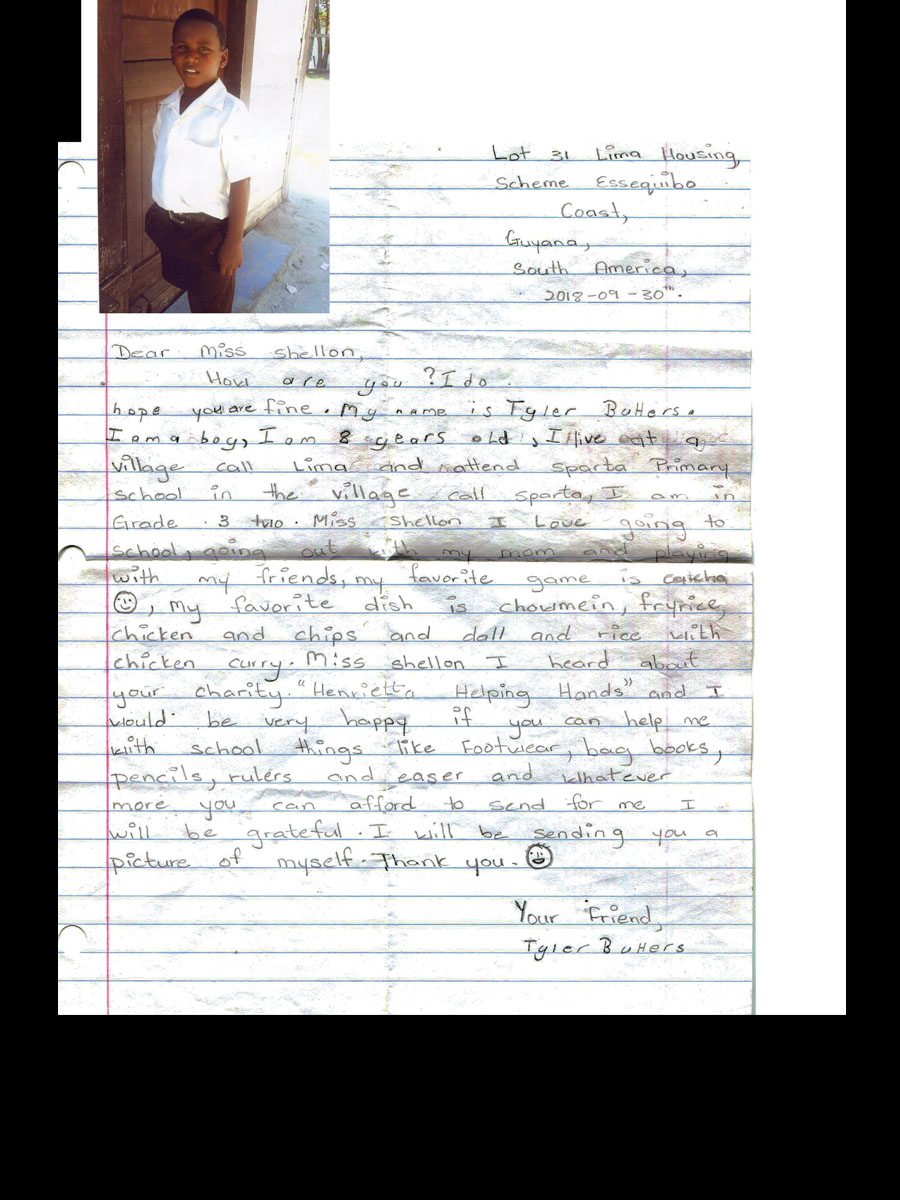 Lot 31 Lima Housing,
Scheme Essequibo
Coast,
Guyana,
South America,
2018-09-30th.
Dear Miss shellon,
How are you? I do.
hope you are fine. My name is Tyler Butters.
I am a boy, I am 8 years old, I live at a
village call Lima and attend sparta Primary
school in the village call sparta, I am in
Grade 3 two. Miss shellon I Love going to
school, going out with my mom and playing
with my friends, my favorite game is catcha
☺, my favorite dish is chowmein, fryrice,
chicken and chips and dall and rice with
chicken curry. Miss shellon I heard about
your charity. "Henrietta Helping Hands" and I
would be very happy if you can help me
with school things like Footwear, bag books,
pencils, rulers and easer and whatever
more you can afford to send for me I
will be grateful. I will be sending you a
picture of myself. Thank you. ☺
Your Friend,
Tyler Butters